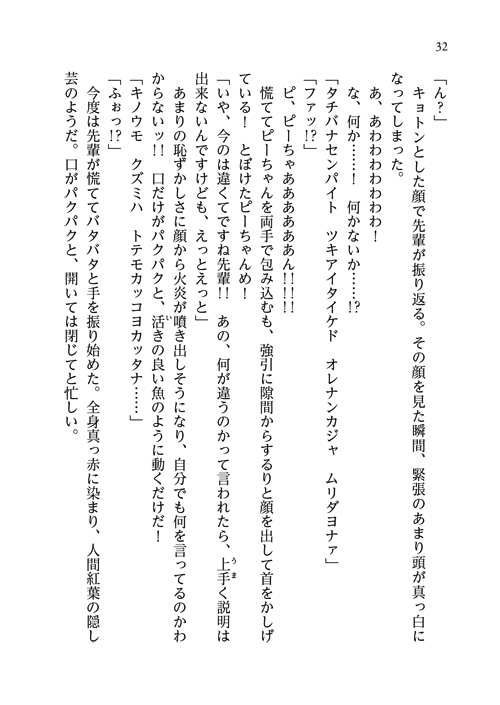 32
「ん？」
　キョトンとした顔で先輩が振り返る。その顔を見た瞬間、緊張のあまり頭が真っ白に
なってしまった。
　あ、あわわわわわわわ！
　な、何か……！　何かないか……!?
「タチバナセンパイト　ツキアイタイケド　オレナンカジャ　ムリダヨナァ」
「ファッ!?」
　ピ、ピーちゃああああああん!!!!
　慌ててピーちゃんを両手で包み込むも、強引に隙間からするりと顔を出して首をかしげ
ている！　とぼけたピーちゃんめ！
「いや、今のは違くてですね先輩!!　あの、何が違うのかって言われたら、上手く説明は
出来ないんですけども、えっとえっと」
　あまりの恥ずかしさに顔から火炎が噴き出しそうになり、自分でも何を言ってるのかわ
からないッ!!　口だけがパクパクと、活きの良い魚のように動くだけだ！
「キノウモ　クズミハ　トテモカッコヨカッタナ……」
「ふぉっ!?」
　今度は先輩が慌ててバタバタと手を振り始めた。全身真っ赤に染まり、人間紅葉の隠し
芸のようだ。口がパクパクと、開いては閉じてと忙しい。